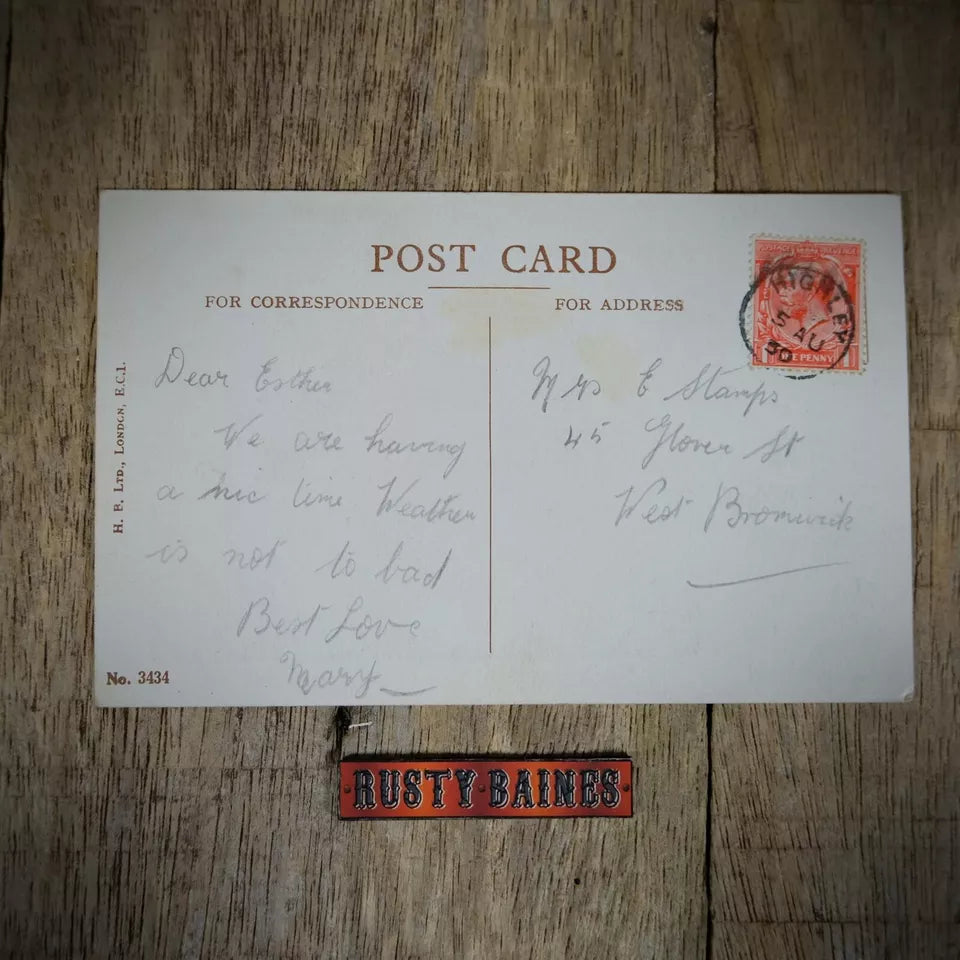 POST CARD
FOR CORRESPONDENCE
FOR ADDRESS
HIGHLEY
5 AU
30
POSTAGE REVENUE
ONE PENNY
H. B. LTD., LONDON, E.C.1.
Dear Esther
We are having
a nic time Weather
is not to bad
Best Love
Mary
Mrs E Stamps
45 Glover St
West Bromwich
No. 3434
RUSTY·BAINES